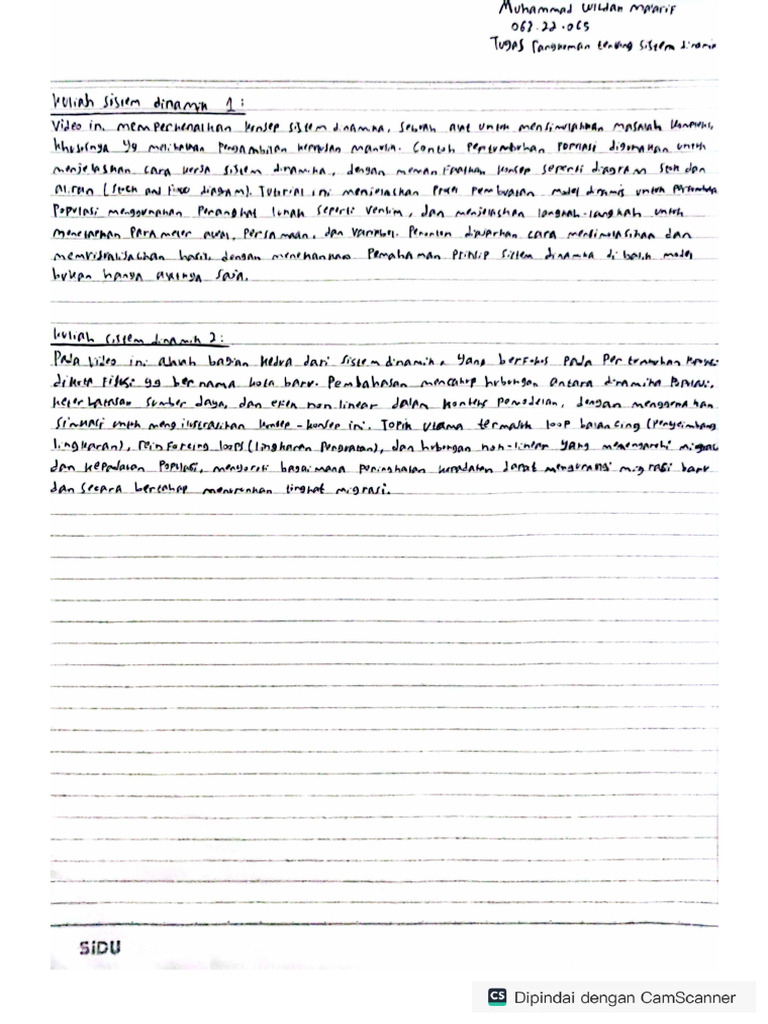 Muhammad Wildan Ma'arif
063.22.065
Tugas rangkuman tentang sistem dinamik
Kuliah sistem dinamik 1 :
Video ini memperkenalkan konsep sistem dinamika, sebuah alat untuk mensimulasikan masalah kompleks,
khususnya yg melibatkan pengambilan keputusan manusia. Contoh pertumbuhan populasi digunakan untuk
menjelaskan cara kerja sistem dinamika, dengan memanfaatkan konsep seperti diagram stok dan
aliran (Stock and Flow diagram). Tutorial ini menjelaskan proses pembuatan model dinamis untuk pertumbuhan
populasi menggunakan perangkat lunak seperti Vensim, dan menjelaskan langkah-langkah untuk
menetapkan parameter awal, persamaan, dan variabel. Penonton diajarkan cara mensimulasikan dan
memvisualisasikan hasil, dengan menekankan pemahaman prinsip sistem dinamika di balik model
bukan hanya aksinya saja.
Kuliah sistem dinamik 2 :
Pada video ini adalah bagian kedua dari sistem dinamik, yang berfokus pada pertumbuhan populasi
dikota fiksi yg bernama kota baru. Pembahasan mencakup hubungan antara dinamika populasi,
keterbatasan sumber daya, dan efek non linear dalam konteks pemodelan, dengan menggunakan
simulasi untuk mengilustrasikan konsep-konsep ini. Topik utama termasuk loop balancing (penyeimbang
lingkaran), reinforcing loops (lingkaran penguatan), dan hubungan non-linear yang memengaruhi migrasi
dan kepadatan populasi, menyoroti bagaimana peningkatan kepadatan dapat mengurangi migrasi baru
dan secara bertahap menurunkan tingkat migrasi.
SiDU
CS Dipindai dengan CamScanner